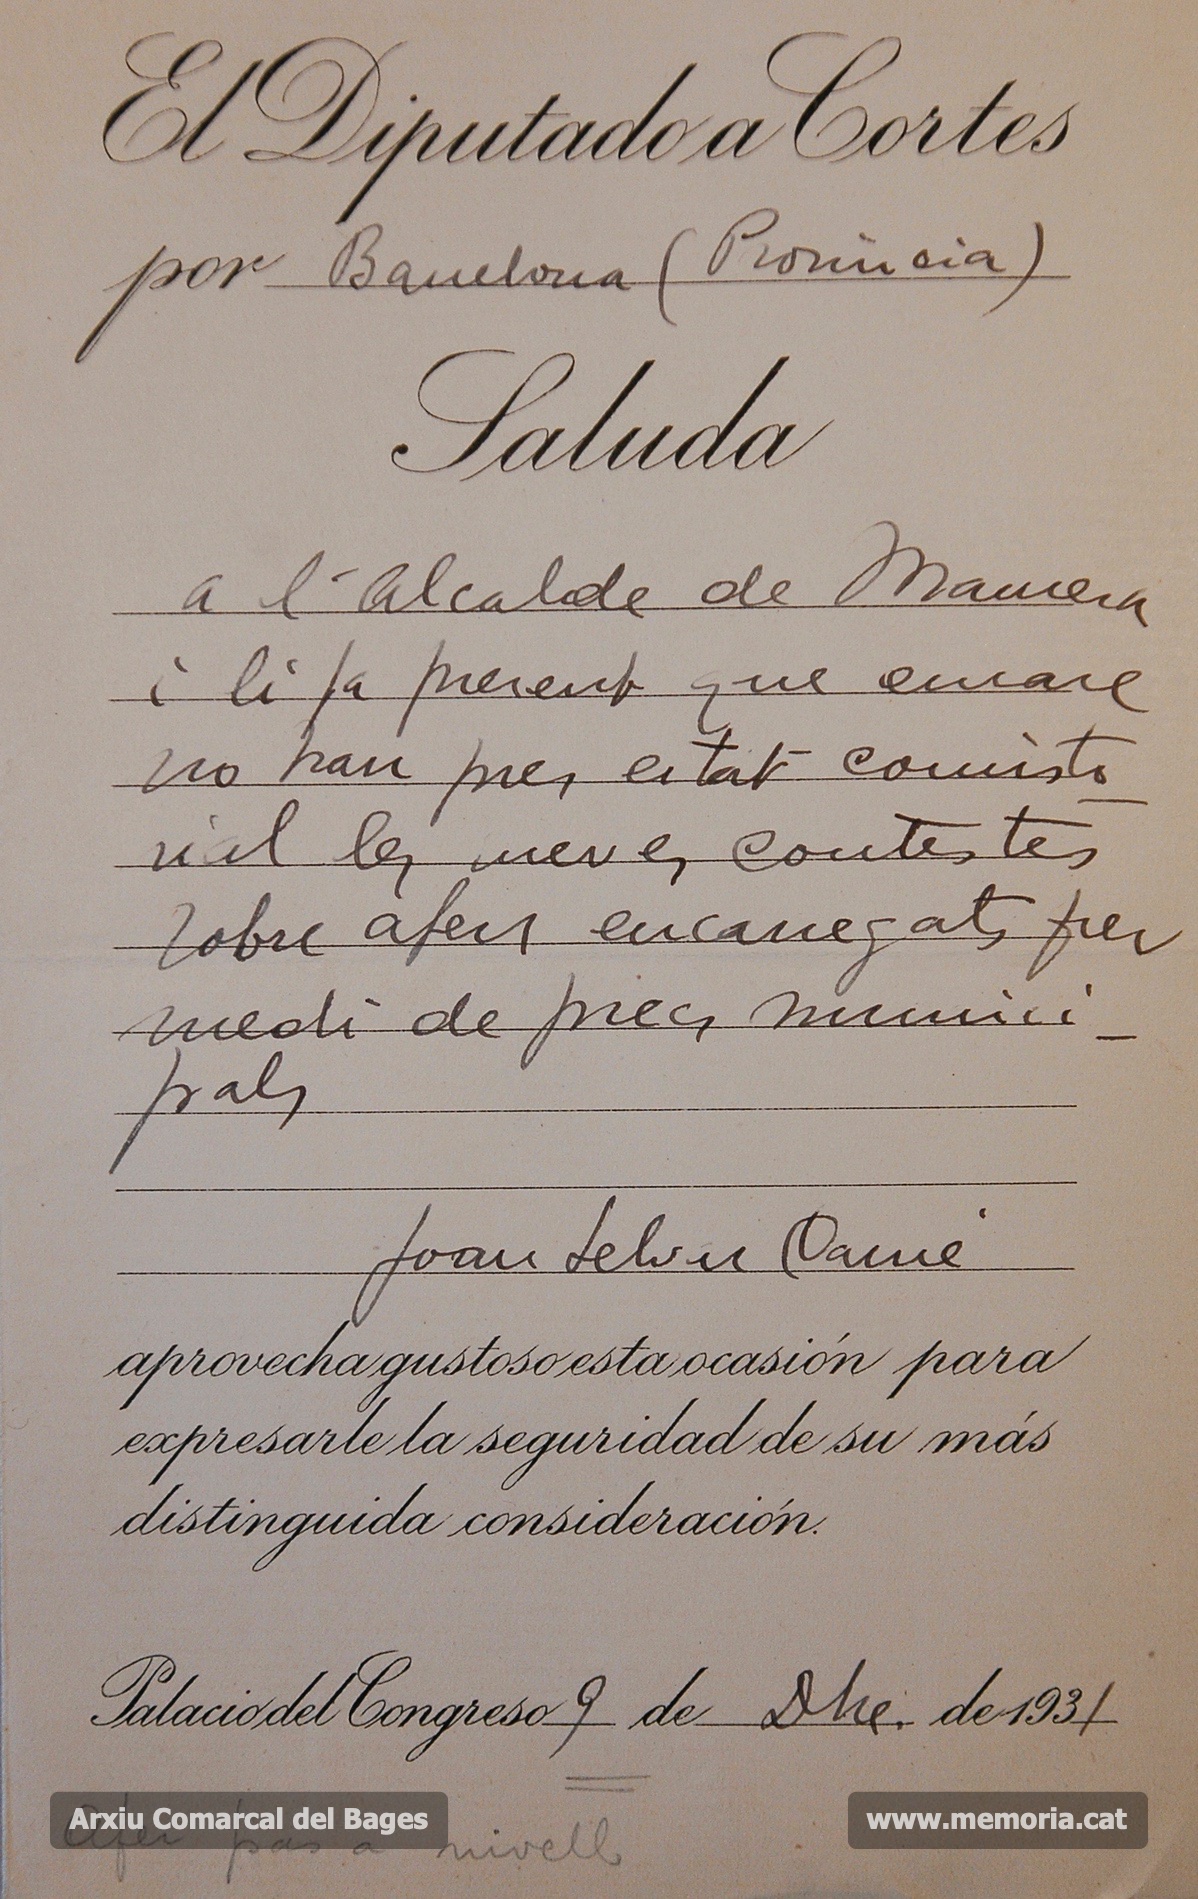 El Diputado a Cortes
por Barcelona (Provincia)
Saluda
a l'Alcalde de Manresa
i li fa present que encare
no han pres estat consisto
rial les meves contestes
sobre afers encarregats per
medi de precs munici-
pals
Joan Selves Carné
aprovecha gustoso esta ocasión para
expresarle la seguridad de su más
distinguida consideración.
Palacio del Congreso 9 de Dbre. de 1931
Afer pas a nivell
Arxiu Comarcal del Bages
www.memoria.cat